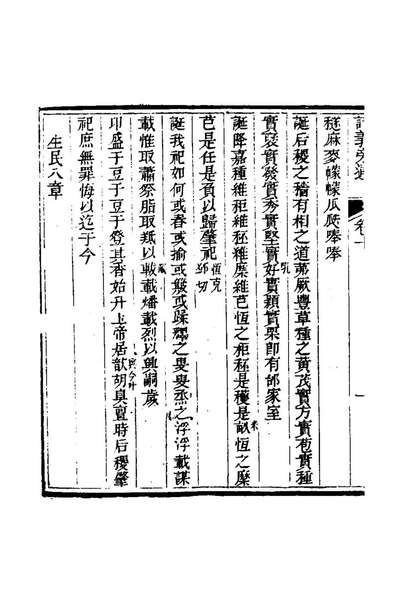 卷十
一
穟麻麥幪幪瓜瓞唪唪
誕后稷之穡有相之道茀厥豐草種之黃茂實方實苞實種
實褎實發實秀實堅實好實穎實栗即有邰家室
誕降嘉種維秬維秠維穈維芑恆之秬秠是穫是畝恆之穈
芑是任是負以歸肇祀
誕我祀如何或舂或揄或簸或蹂釋之叟叟烝之浮浮載謀
載惟取蕭祭脂取羝以軷載燔載烈以興嗣歲
卬盛于豆于豆于登其香始升上帝居歆胡臭亶時后稷肇
祀庶無罪悔以迄于今
生民八章